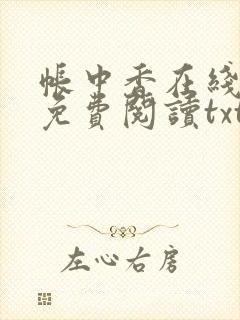 帳中香在綫
免費閱讀txt
左心右房